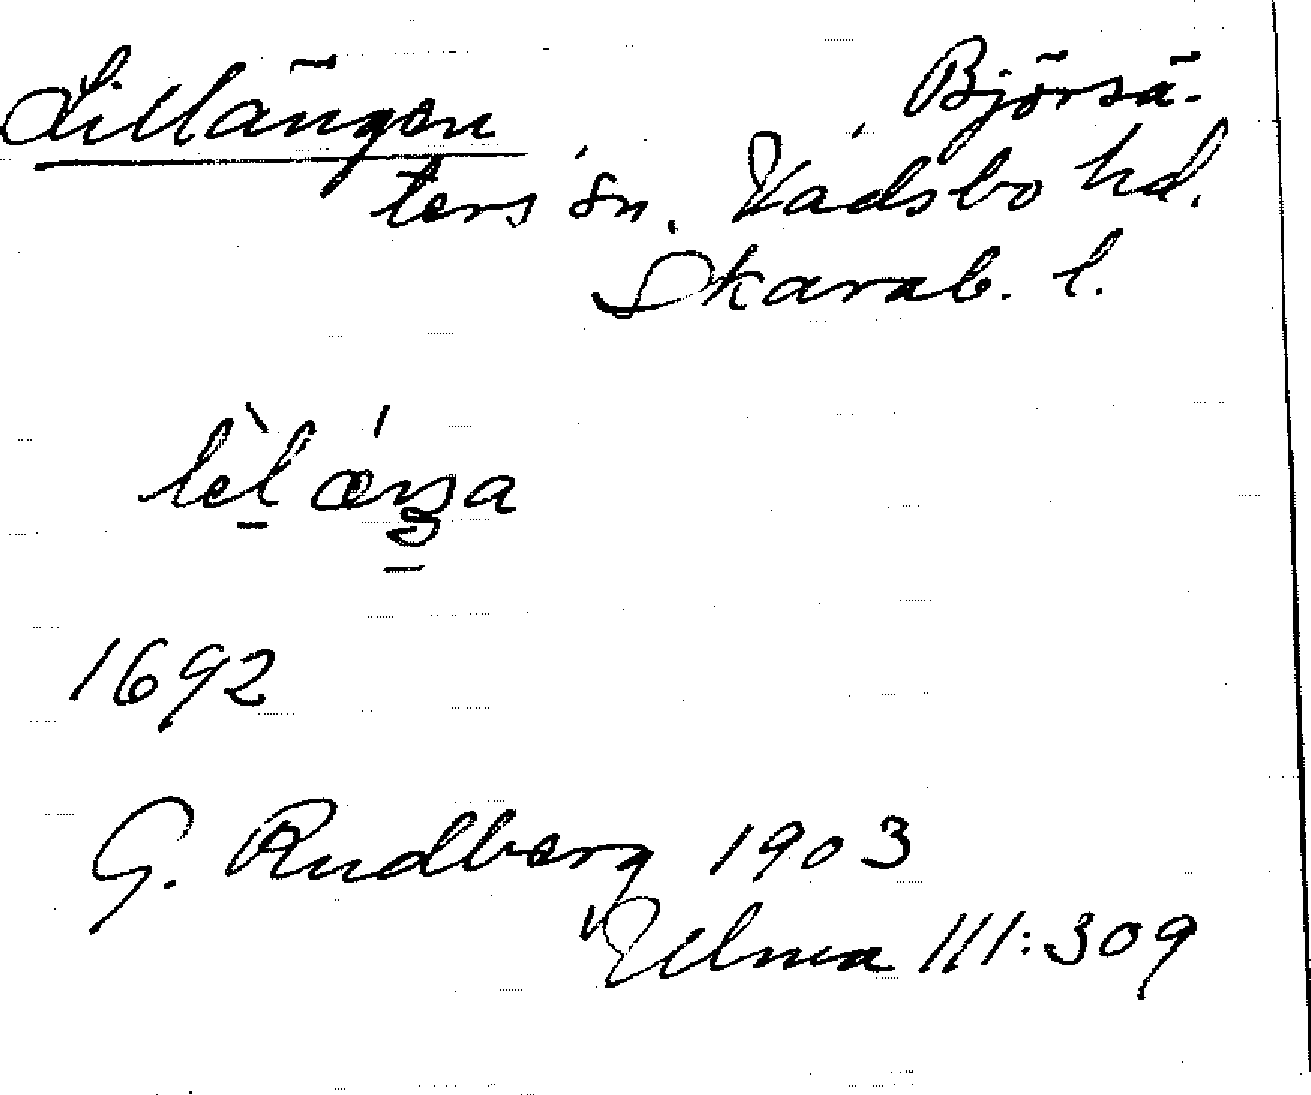 Lillängen Björsä-
ters sn. Vadsbo hd.
Skarab. l.
lèl ǽŋa
1692
G. Rudberg 1903
Ulma III:309